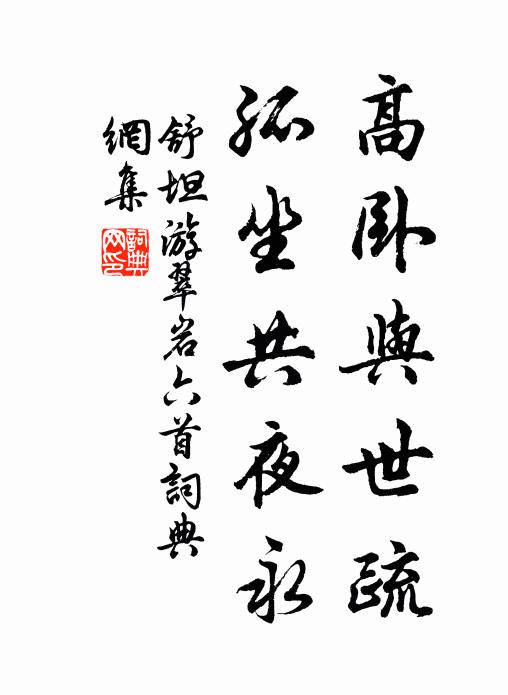 高卧與世疏
孤坐共夜永
舒坦游翠岩六首詞典
網集
詞典网印